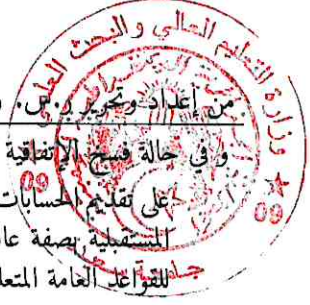 وزارة التعليم العالي والبحث العلمي
من أعداد وتحرير ر.س.
وفي حالة فسخ الإتفاقية
على تقديم الحسابات
المستقبلية بصفة
للقواعد العامة
09 09